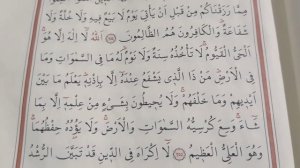 مِمَّا رَزَقْنَاكُمْ مِنْ قَبْلِ أَنْ يَأْتِيَ يَوْمٌ لَا بَيْعٌ فِيهِ وَلَا خُلَّةٌ وَلَا
شَفَاعَةٌ وَالْكَافِرُونَ هُمُ الظَّالِمُونَ ﴿٢٥٤﴾ اَللّٰهُ لَا إِلٰهَ إِلَّا هُوَ
الْحَيُّ الْقَيُّومُ لَا تَأْخُذُهُ سِنَةٌ وَلَا نَوْمٌ لَهُ مَا فِي السَّمٰوَاتِ وَمَا
فِي الْأَرْضِ مَنْ ذَا الَّذِي يَشْفَعُ عِنْدَهُ إِلَّا بِإِذْنِهِ يَعْلَمُ مَا بَيْنَ
أَيْدِيهِمْ وَمَا خَلْفَهُمْ وَلَا يُحِيطُونَ بِشَيْءٍ مِنْ عِلْمِهِ إِلَّا بِمَا
شَاءَ وَسِعَ كُرْسِيُّهُ السَّمٰوَاتِ وَالْأَرْضَ وَلَا يَؤُدُهُ حِفْظُهُمَا
وَهُوَ الْعَلِيُّ الْعَظِيمُ ﴿٢٥٥﴾ لَا إِكْرَاهَ فِي الدِّينِ قَدْ تَبَيَّنَ الرُّشْدُ